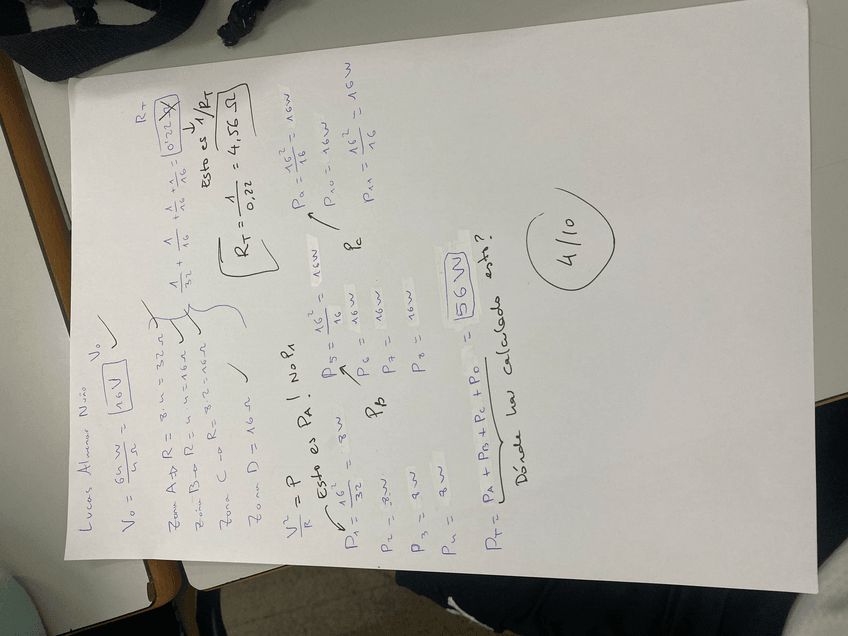 Lucas Almenar Nuño
V₀ = 64W / 4Ω = 16V V₀ ✓
Zona A → R = 8·4 = 32Ω ✓
Zona B → R = 4·4 = 16Ω ✓
Zona C → R = 8·2 = 16Ω ✓
Zona D = 16Ω ✓
1/32 + 1/16 + 1/16 + 1/16 = 0'22 Ω RT
Esto es 1/RT
RT = 1/0,22 = 4,56 Ω
V²/R = P
Esto es PA! NO P1
P1 = 16²/32 = 8W P5 = 16²/16 = 16W P9 = 16²/16 = 16W
P2 = 8W P6 = 16W P10 = 16W
PB PC
P3 = 8W P7 = 16W P11 = 16²/16 = 16W
P4 = 8W P8 = 16W
PT = PA + PB + PC + PD = 56W
Dónde has calculado esto?
4/10